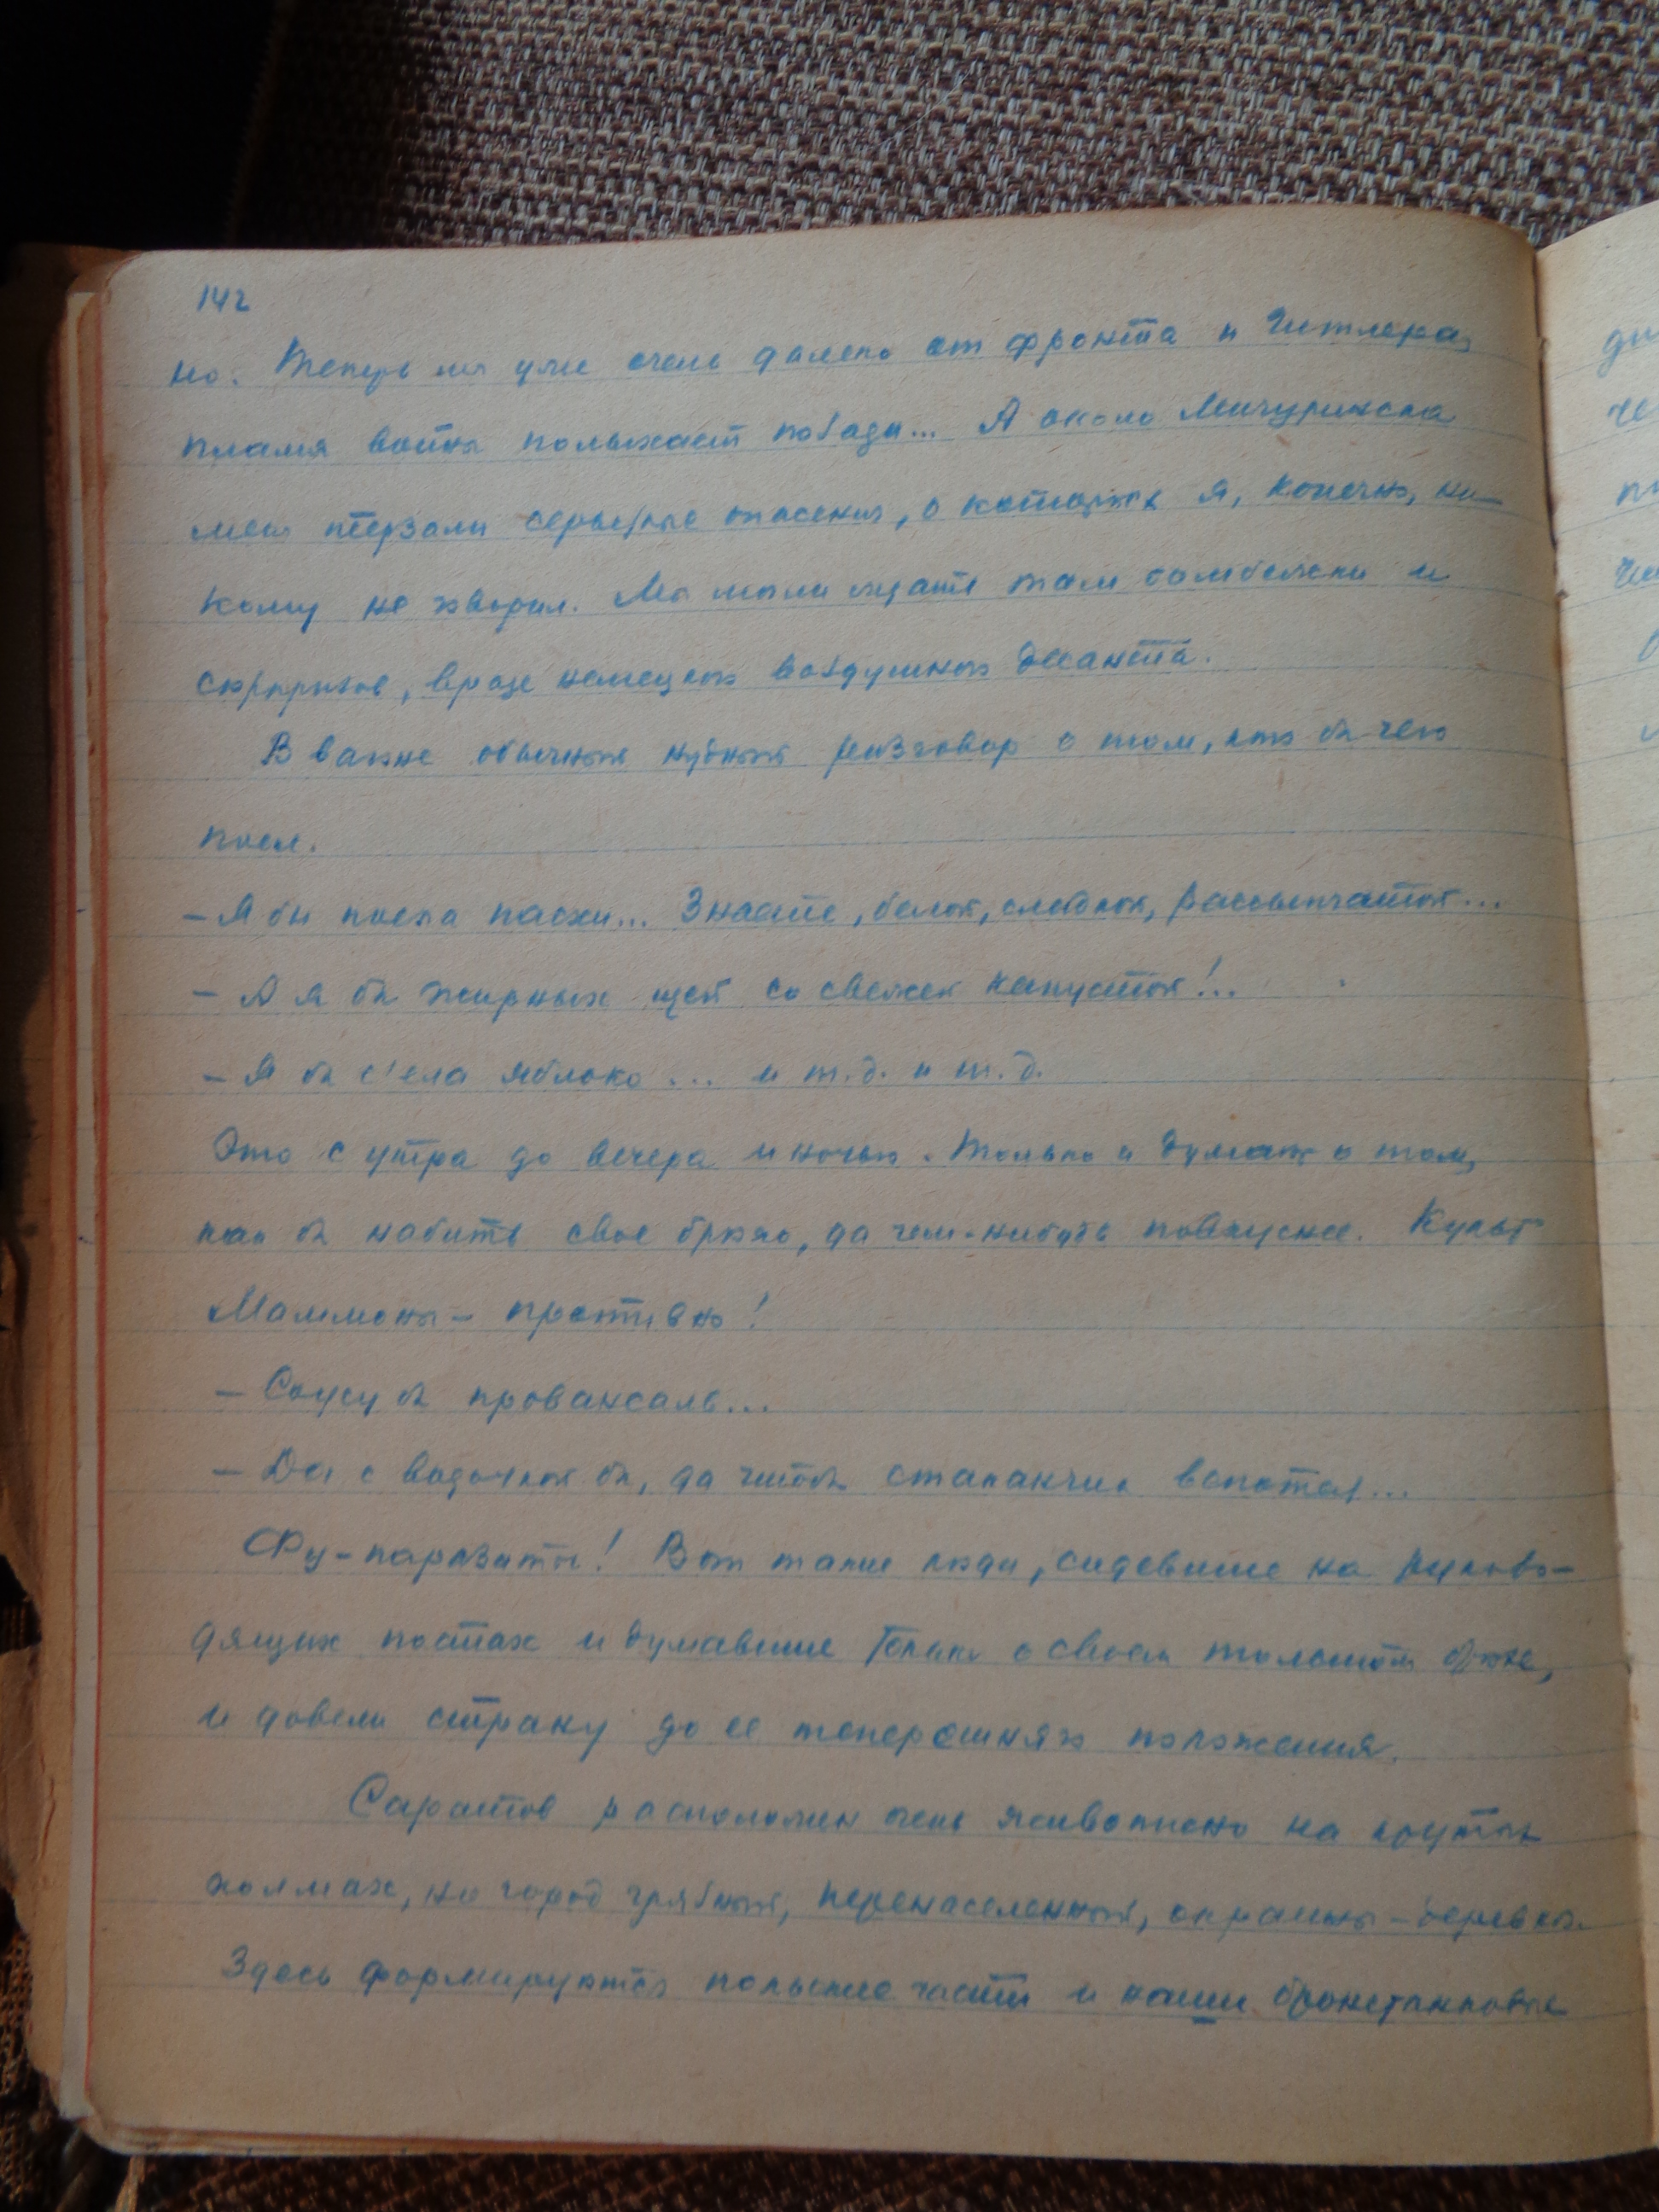 142
но. Теперь мы уже очень далеко от фронта и Гитлера,
пламя войны полыхает позади... А около Мичуринска
меня терзали серьезные опасения, о которых я, конечно, ни-
кому не говорил. Мы могли ждать там бомбежки и
сюрпризов, вроде немецкого воздушного десанта.
В вагоне обычный нудный разговор о том, кто бы чего
поел.
- Я бы поела пасхи... Знаете, белой, сладкой, рассыпчатой...
- А я бы жирных щей со свежей капустой!..
- Я бы с'ела яблоко... и т.д. и т.д.
Это с утра до вечера и ночью. Только и думают о том,
как бы набить свое брюхо, да чем-нибудь повкуснее. Культ
Маммоны - противно!
- Соусу бы провансаль...
- Да с водочкой бы, да чтобы стаканчик
Фу - паразиты! Вот такие люди, сидевшие на руково-
дящих постах и думавшие только о своем толстом брюхе,
и довели страну до ее теперешнего положения.
Саратов расположен очень живописно на крутых
холмах, но город грязный, перенаселенный, окраины - деревня.
Здесь формируются польские части и наши бронетанковые